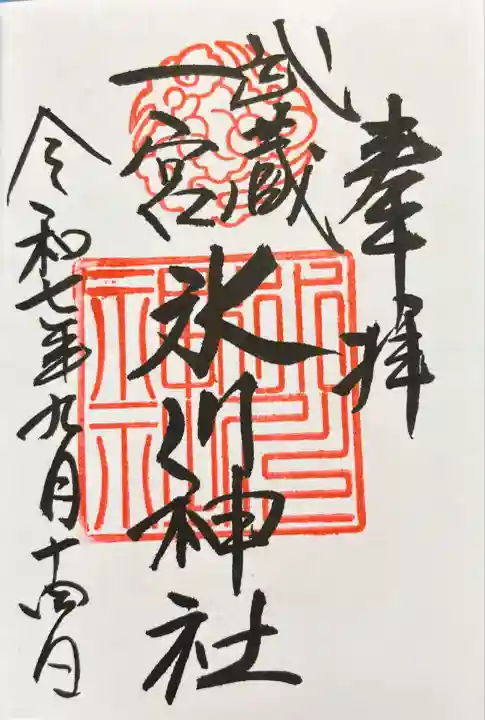 奉拝
武蔵
一宮
氷川神社
令和七年九月十四日